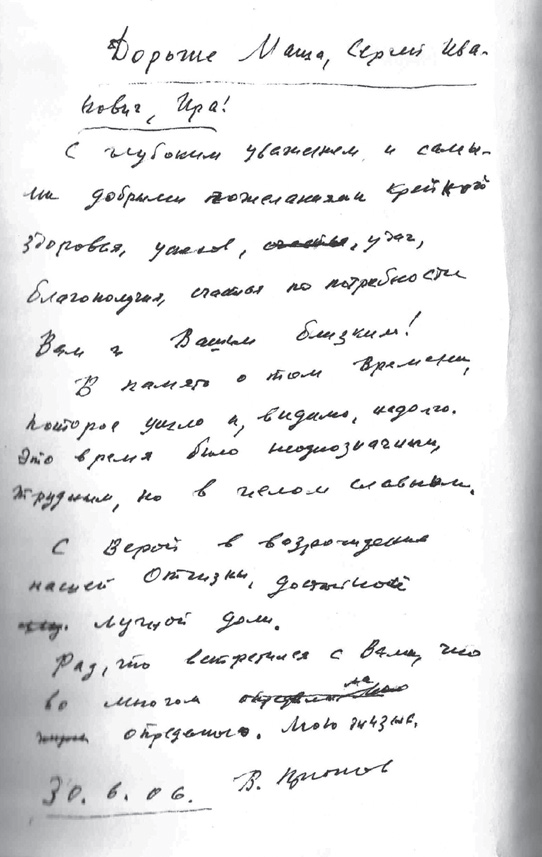 Дорогие Маша, Сергей Ива-
нович, Ира!
С глубоким уважением и самы-
ми добрыми пожеланиями крепкого
здоровья, успехов, счастья, удач,
благополучия, счастья по потребности
Вам и Вашим близким!
В память о том времени,
которое ушло и, видимо, надолго.
Это время было неоднозначным,
трудным, но в целом славным.
С Верой в возрождение
нашей Отчизны, достойной
лучшей доли.
Рад, что встретился с Вами, что
во многом
определило. Мою жизнь.
30.6.06. В.